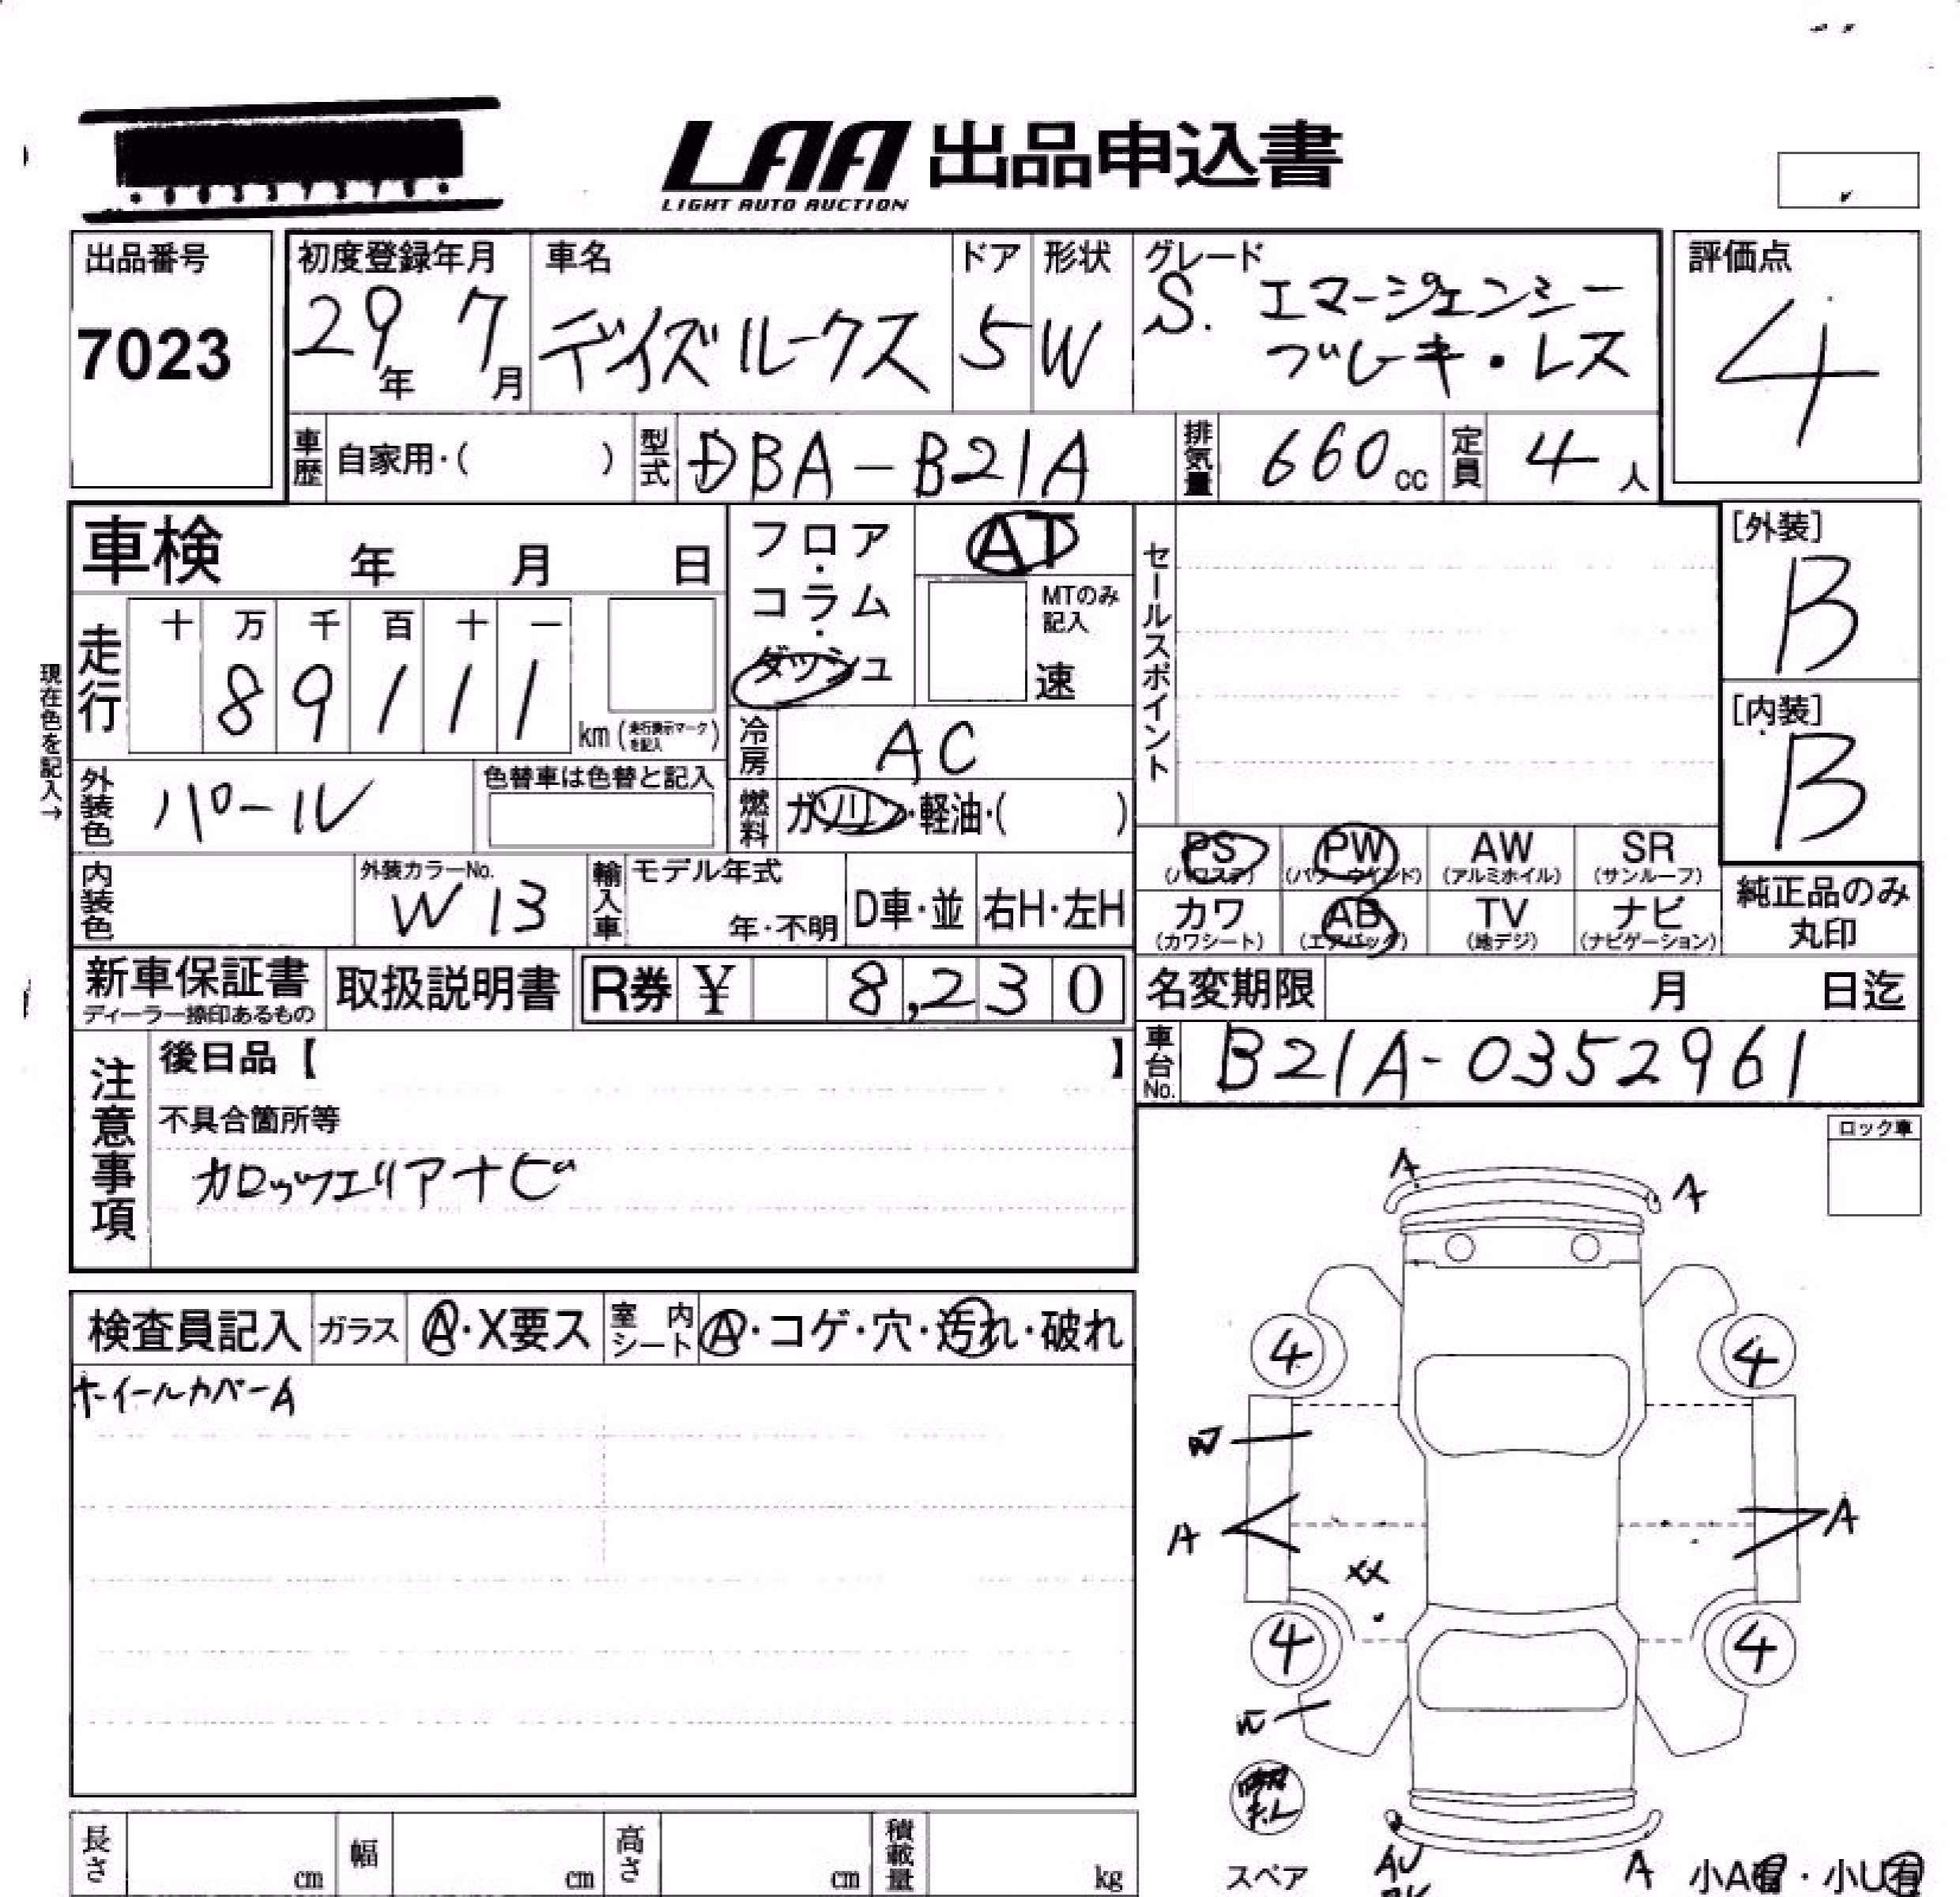 LAA 出品申込書
LIGHT AUTO AUCTION
出品番号
7023
初度登録年月
29年 7月
車名
デイズルークス
ドア
5
形状
W
グレード
S. エマージェンシー
ブレーキ・レス
評価点
4
車歴 自家用・( )
型式 DBA-B21A
排気量 660cc
定員 4人
車検 年 月 日
フロア・コラム・ダッシュ
AT
MTのみ記入
速
セールスポイント
[外装]
B
[内装]
B
現在色を記入→
走行 十 万 千 百 十 一
8 9 1 1 1 km (走行表示マークを記入)
冷房 AC
外装色 パール
色替車は色替と記入
燃料 ガソリン・軽油・( )
PS (パワステ)
PW (パワーウインド)
AW (アルミホイル)
SR (サンルーフ)
カワ (カワシート)
AB (エアバッグ)
TV (地デジ)
ナビ (ナビゲーション)
純正品のみ
丸印
内装色
外装カラーNo.
W13
輸入車
モデル年式
年・不明
D車・並
右H・左H
新車保証書
ディーラー捺印あるもの
取扱説明書
R券 ¥ 8,230
名変期限 月 日迄
車台No. B21A-0352961
注意事項
後日品【 】
不具合箇所等
カロッツェリアナビ
ロック車
検査員記入
ガラス A・X要ス
室内シート A・コゲ・穴・汚れ・破れ
ホイールカバーA
A
A
4
4
W
A
A
XX
4
4
W
スペア
AU
A
小A有・小U有
長さ cm
幅 cm
高さ cm
積載量 kg